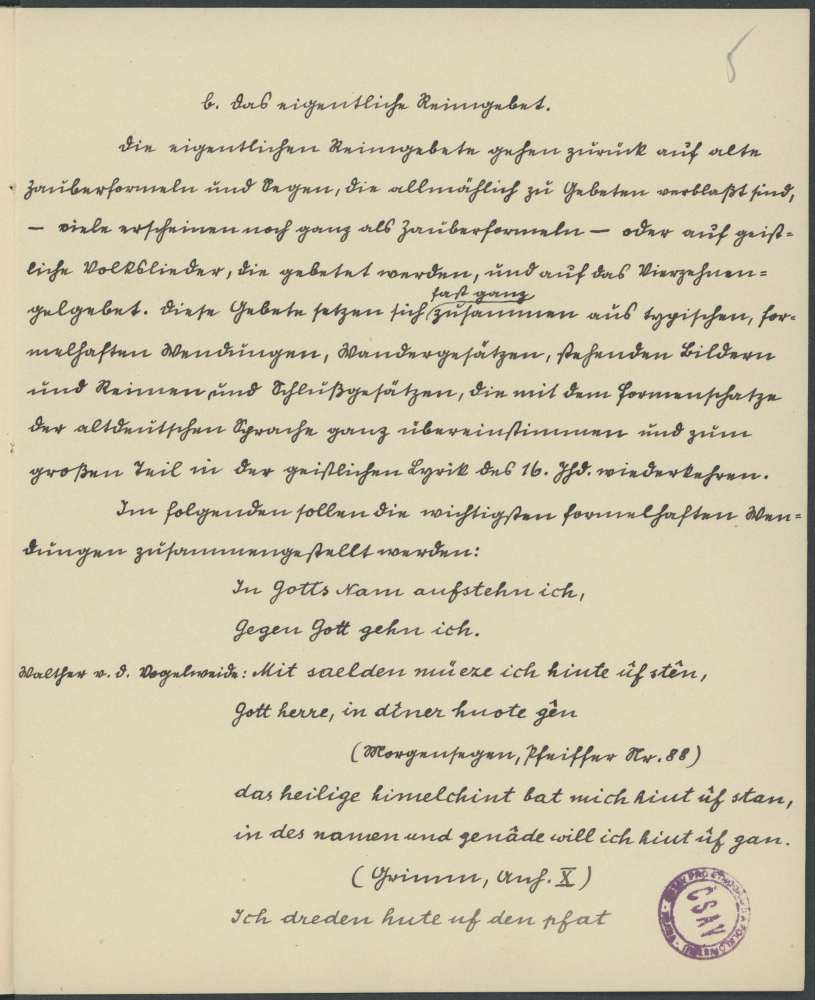 5
b. Das eigentliche Reimgebet.
Die eigentlichen Reimgebete gehen zurück auf alte
Zauberformeln und Segen, die allmählich zu Gebeten verblaßt sind,
— viele erscheinen noch ganz als Zauberformeln — oder auf geist=
liche Volkslieder, die gebetet werden, und auf das Vierzehnen=
fast ganz
gelgebet. Diese Gebete setzen sich zusammen aus typischen, for=
melhaften Wendungen, Wandergesätzen, stehenden Bildern
und Reimen, und Schlußgesätzen, die mit dem Formenschatze
der altdeutschen Sprache ganz übereinstimmen und zum
großen Teil in der geistlichen Lyrik des 16. Jhd. wiederkehren.
Im folgenden sollen die wichtigsten formelhaften Wen=
dungen zusammengestellt werden:
In Gotts Nam aufstehn ich,
Gegen Gott gehn ich.
Walther v. d. Vogelweide: Mit saelden müeze ich hiute ûf stên,
Gott herre, in dîner huote gên
(Morgensegen, Pfeiffer Nr. 88)
das heilige himelchint bat mich hiut ûf stan,
in des namen und genâde will ich hiut ûf gan.
(Grimm, Anh. X)
Ich dreden hute uf den pfat
ČSAV